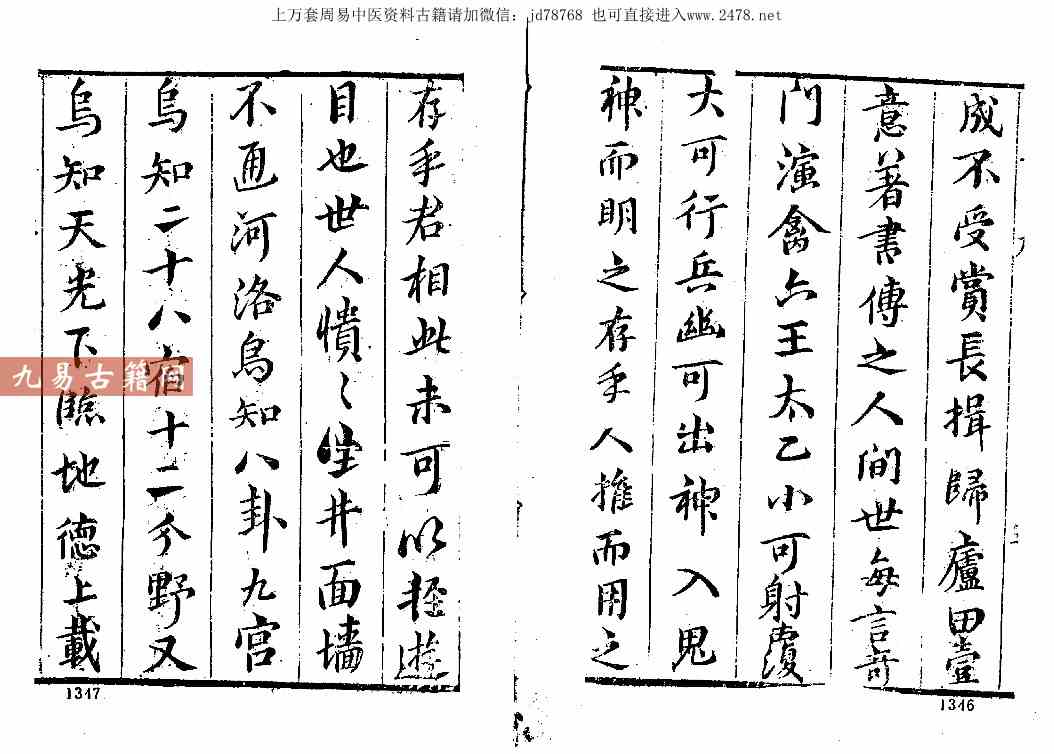 上万套周易中医资料古籍请加微信：jd78768 也可直接进入www.2478.net
成不受賞長揖歸廬田壹
意著書傳之人间世每言奇
门演禽六王太乙小可射覆
大可行兵幽可出神入鬼
神而明之存乎人推而用之
1346
存乎君相此未可以轻遊
目也世人愦々坐井面墙
不通河洛烏知八卦九宫
烏知二十八宿十二分野又
烏知天光下臨地德上載
1317
九易古籍阁